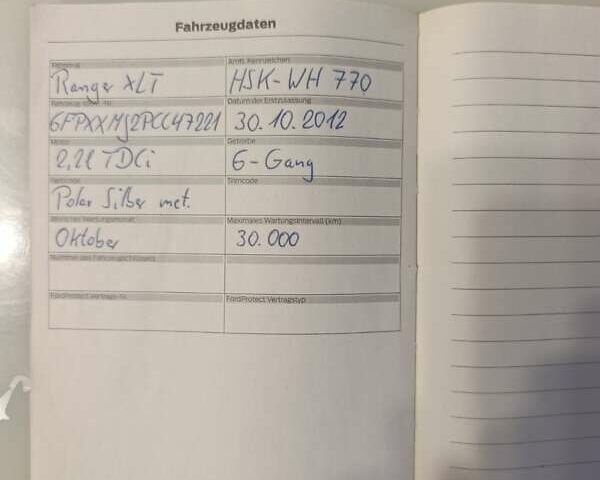 Fahrzeugdaten
Fahrzeug
Amtl. Kennzeichen
Ranger XLT
HSK-WH 770
Datum der Erstzulassung
6FPXXMJ2PCC47221
30.10.2012
Motor
Getriebe
2,2l TDCi
6-Gang
Trimcode
Polar Silber met.
Maximales Wartungsintervall (km)
Oktober
30.000
Nummer des Fahrzeugschlüssels
FordProtect Vertrags-Nr.
FordProtect Vertragstyp